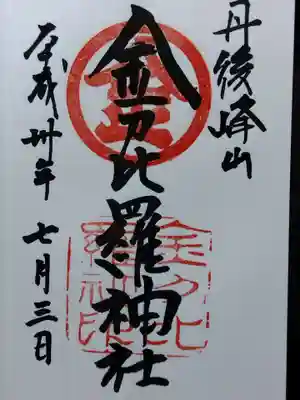 丹後峰山
金
金刀比羅神社
金刀比
羅神
社印
平成卅年 七月三日